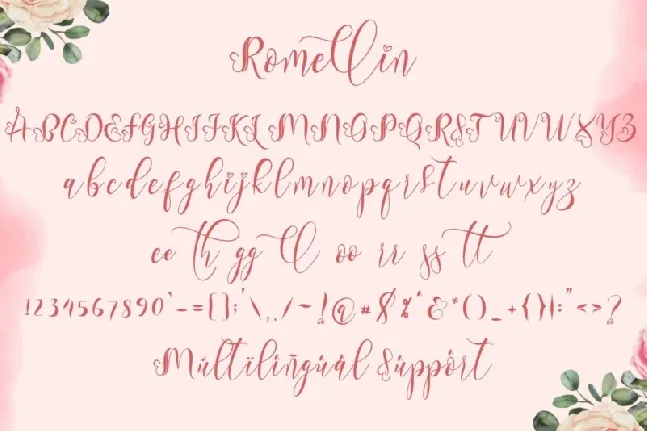 Romellin
A B C D E F G H I J K L M N O P Q R S T U V W X Y Z
a b c d e f g h i j k l m n o p q r s t u v w x y z
ee th gg ll oo rr ss tt
1234567890`-=[];'\,./~!@#$%^&*()_+{}|:"<>?
Múltïlíñgúál Súppórt